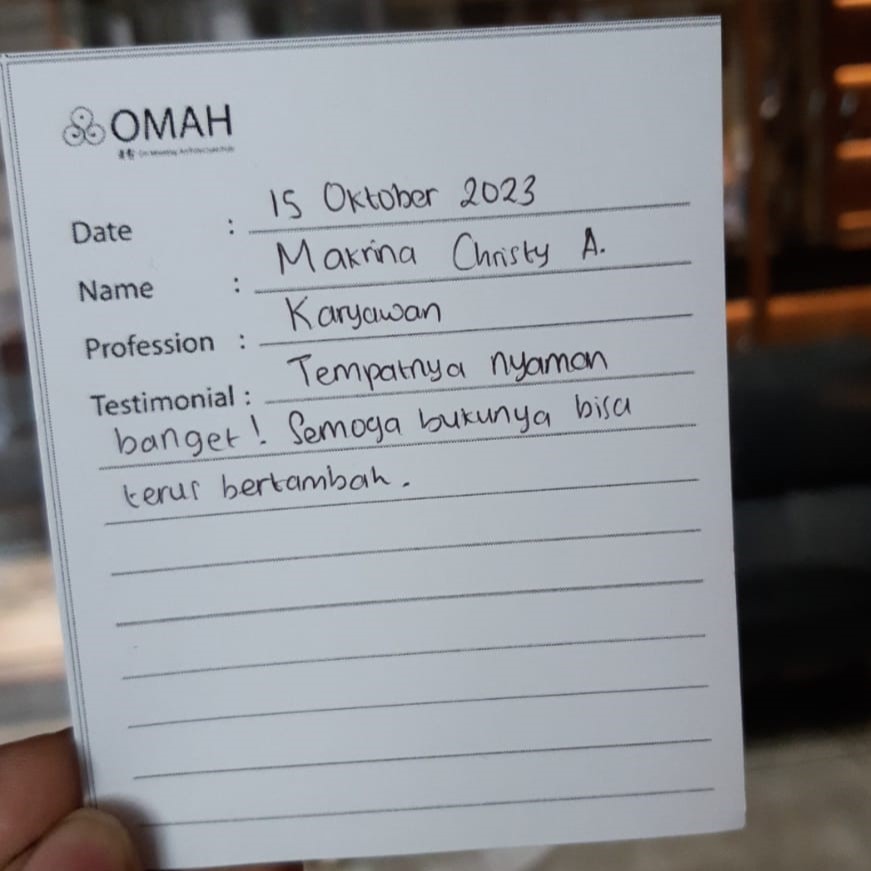 OMAH
Date : 15 Oktober 2023
Name : Makrina Christy A.
Profession : Karyawan
Testimonial : Tempatnya nyaman
banget! Semoga bukunya bisa
terus bertambah.